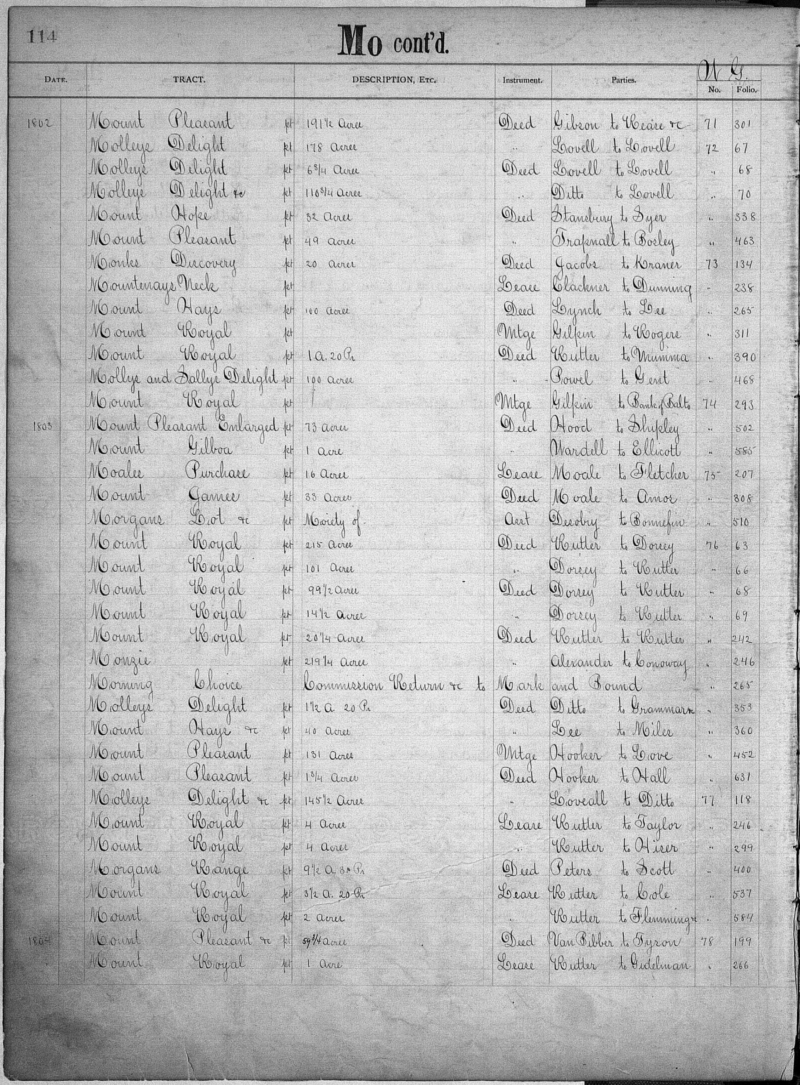 114
Mo cont'd.
W G.
DATE. TRACT. DESCRIPTION, ETC. Instrument. Parties. No. Folio.
1802 Mount Pleasant pt 191½ Acres Deed Gibson to &c 71 301
Molleys Delight pt 178 Acres " Lovell to Lovell 72 67
Molleys Delight pt 6¾ Acres Deed Lovell to Lovell " 68
Molleys Delight &c pt 110¾ Acres " Ditto to Lovell " 70
Mount Hope pt 32 Acres Deed Stansbury to Syer " 338
Mount Pleasant pt 49 Acres " Trapnall to Bosley " 463
Monks Discovery pt 20 Acres Deed Jacobs to Kraner 73 134
Mountenays Neck pt Lease Clackner to Dunning " 238
Mount Hays pt 100 Acres Deed Lynch to Lee " 265
Mount Royal pt Mtge Gilpin to Rogers " 311
Mount Royal pt 1 A. 20 Ps Deed Rutter to Mumma " 390
Mollys and Sallys Delight pt 100 Acres " Powel to Gent " 468
Mount Royal pt Mtge Gilpin to Bank of Balto 74 293
1803 Mount Pleasant Enlarged pt 73 Acres Deed Hood to Shipley " 502
Mount Gilboa pt 1 Acre " Wardell to Ellicott " 585
Moales Purchase pt 16 Acres Lease Moale to Fletcher 75 207
Mount James pt 33 Acres Deed Moale to Amos " 308
Morgans Lot &c pt Moiety of Asst Desobry to Bonnefin " 510
Mount Royal pt 215 Acres Deed Rutter to Dorsey 76 63
Mount Royal pt 101 Acres " Dorsey to Rutter " 66
Mount Royal pt 99½ Acres Deed Dorsey to Rutter " 68
Mount Royal pt 14½ Acres " Dorsey to Rutter " 69
Mount Royal pt 20¼ Acres Deed Rutter to Rutter " 242
Monzie pt 219¼ Acres " Alexander to Conoway " 246
Morning Choice Commission Return &c to Mark and Bound " 265
Molleys Delight pt 1½ A 20 Ps Deed Ditto to Grammars " 353
Mount Hays &c pt 40 Acres " Lee to Miles " 360
Mount Pleasant pt 131 Acres Mtge Hooker to Love " 452
Mount Pleasant pt 1¾ Acres Deed Hooker to Hall " 631
Molleys Delight &c pt 145½ Acres " Loveall to Ditto 77 118
Mount Royal pt 4 Acres Lease Rutter to Taylor " 246
Mount Royal pt 4 Acres " Rutter to Hiser " 299
Morgans Range pt 9½ A 30 Ps Deed Peters to Scott " 400
Mount Royal pt 3½ A. 20 Ps Lease Rutter to Cole " 537
Mount Royal pt 2 Acres " Rutter to Flemming " 584
1804 Mount Pleasant &c pt Acres Deed Van Bibber to Tyson 78 199
Mount Royal pt 1 Acre Lease Rutter to Gidelman " 266